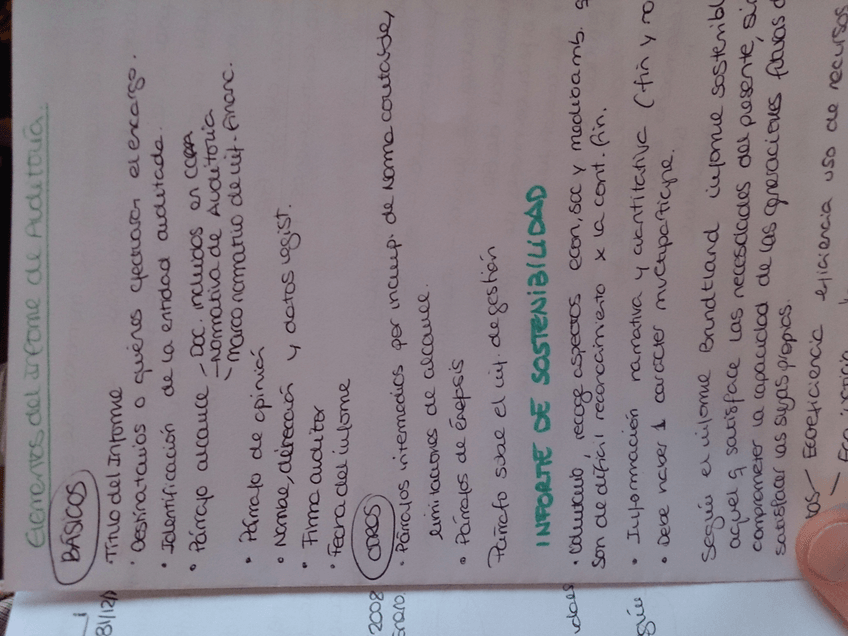 Elementos del Informe de Auditoría.
BÁSICOS
· Título del Informe
· Destinatarios o quiénes efectuaron el encargo.
· Identificación de la entidad auditada.
· Párrafo alcance - Doc. incluidos en CCAA
- Normativa de Auditoria
- Marco normativo de inf. financ.
· Párrafo de opinión
· Nombre, dirección y datos regist.
· Firma auditor
· Fecha del informe
OTROS
· Párrafos intermedios por incump. de Norma contable,
limitaciones de alcance.
· Párrafos de énfasis
Párrafo sobre el inf. de gestión
INFORTE DE SOSTENIBILIDAD
· Voluntario, recoge aspectos econ, soc y medioamb.
son de difícil reconocimiento x la cont. fin.
· Información narrativa y cuantitativa (fin y no
· Debe haber 1 carácter multipartícipe.
Según el informe Brundtland informe sostenibl
aquel q satisface las necesidades del presente, sin
comprometer la capacidad de las generaciones futuras d
satisfacer las suyas propias.
- Ecoeficiencia eficiencia uso de recursos
31/12/
2008
Enero
dades
gún